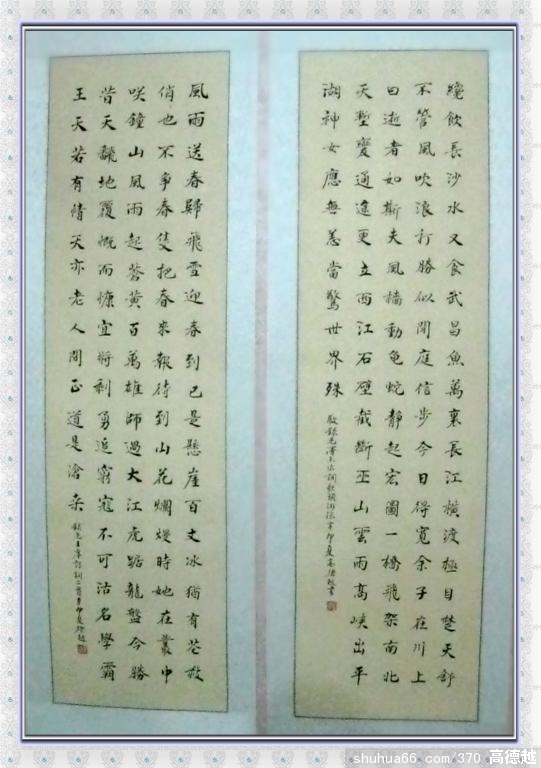 纔飲長沙水又食武昌魚萬裏長江橫渡極目楚天舒
不管風吹浪打勝似閒庭信步今日得寬余子在川上
曰逝者如斯夫風檣動龜蛇靜起宏圖一橋飛架南北
天塹變通途更立西江石壁截斷巫山雲雨高峽出平
湖神女應無恙當驚世界殊
辛卯夏高德越書
風雨送春歸飛雪迎春到已是懸崖百丈冰猶有花枝
俏也不爭春隻把春來報待到山花爛熳時她在叢中
咲鐘山風雨起蒼黃百萬雄師過大江虎踞龍盤今勝
昔天翻地覆慨而慷宜將剩勇追窮寇不可沽名學霸
王天若有情天亦老人間正道是滄桑
錄毛主席詩詞二首辛卯夏德越
shuhua66.com/370 高德越